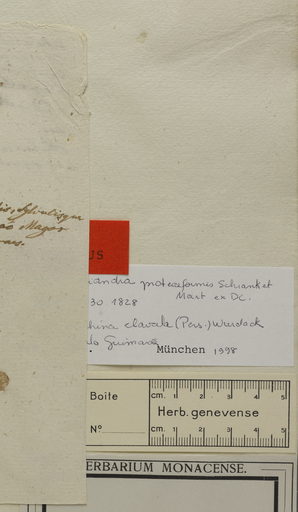 Sylvatisque
Major
US
iandra proteaeformis Schrank et
Mart ex DC.
30 1828
china clavata (Pers.) Wurdack
lo Guimarã
München 1998
Boite
cm. 1 2 3 4 5
Herb. genevense
No
cm. 1 2 3 4 5
ERBARIUM MONACENSE.